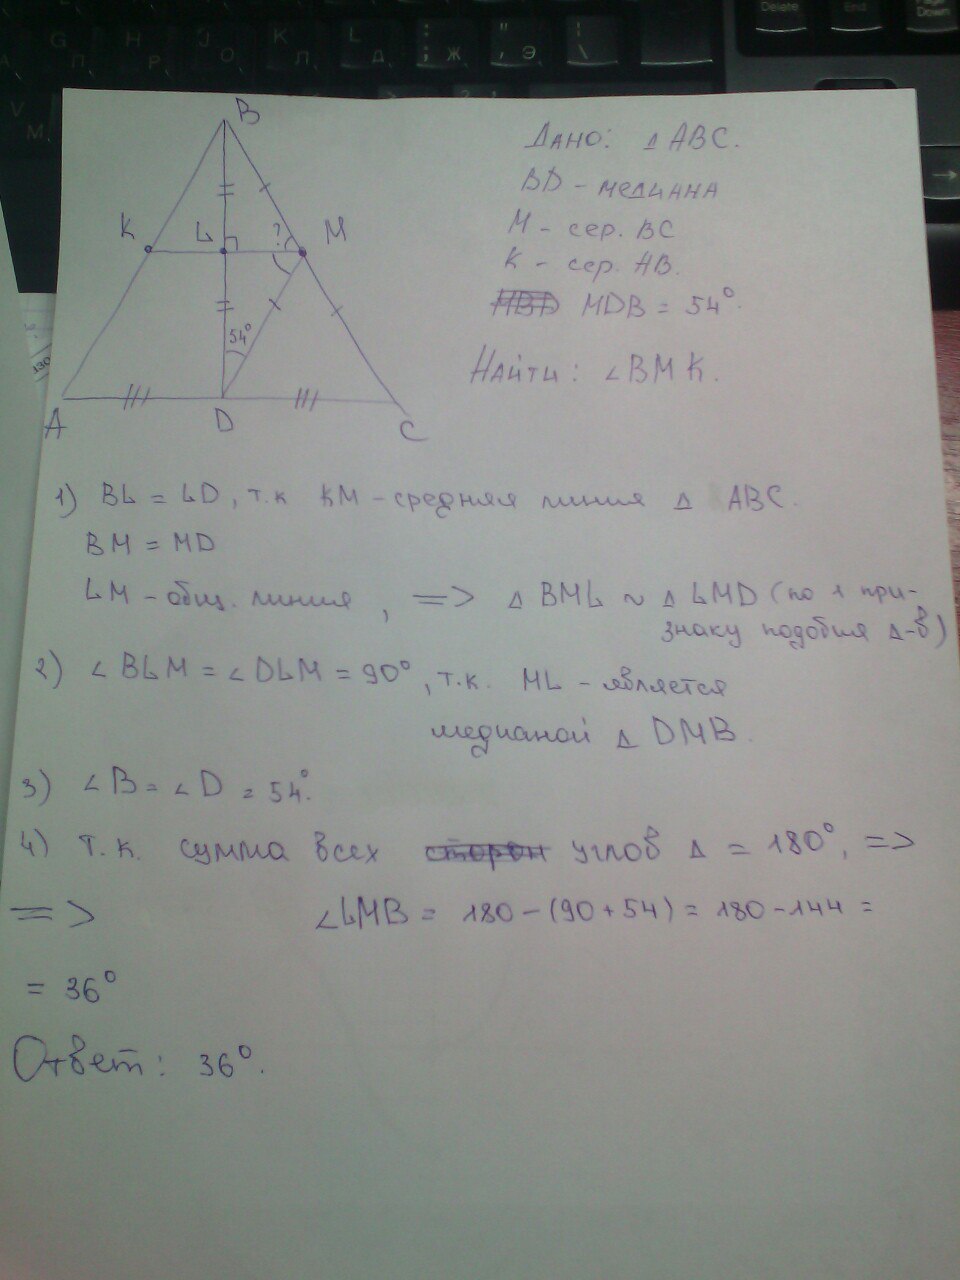 Delete
End
Page Down
G
H
J
K
L
;
П
Р
О
Л
Д
Ж
Э
\
V
М
→
130
B
K
L
?
M
54°
A
D
C
Дано: △ ABC.
BD - медиана
M - сер. BC
K - сер. AB.
MBD MDB = 54°.
Найти: ∠BMK.
1) BL = LD, т.к KM - средняя линия △ ABC.
BM = MD
LM - общ. линия, => △ BML ~ △ LMD (по 1 при-
знаку подобия △-в)
2) ∠BLM = ∠DLM = 90°, т.к. ML - является
медианой △ DMB.
3) ∠B = ∠D = 54°.
4) Т.к. сумма всех сторон углов △ = 180°, =>
=> ∠LMB = 180 - (90 + 54) = 180 - 144 =
= 36°
Ответ: 36°.